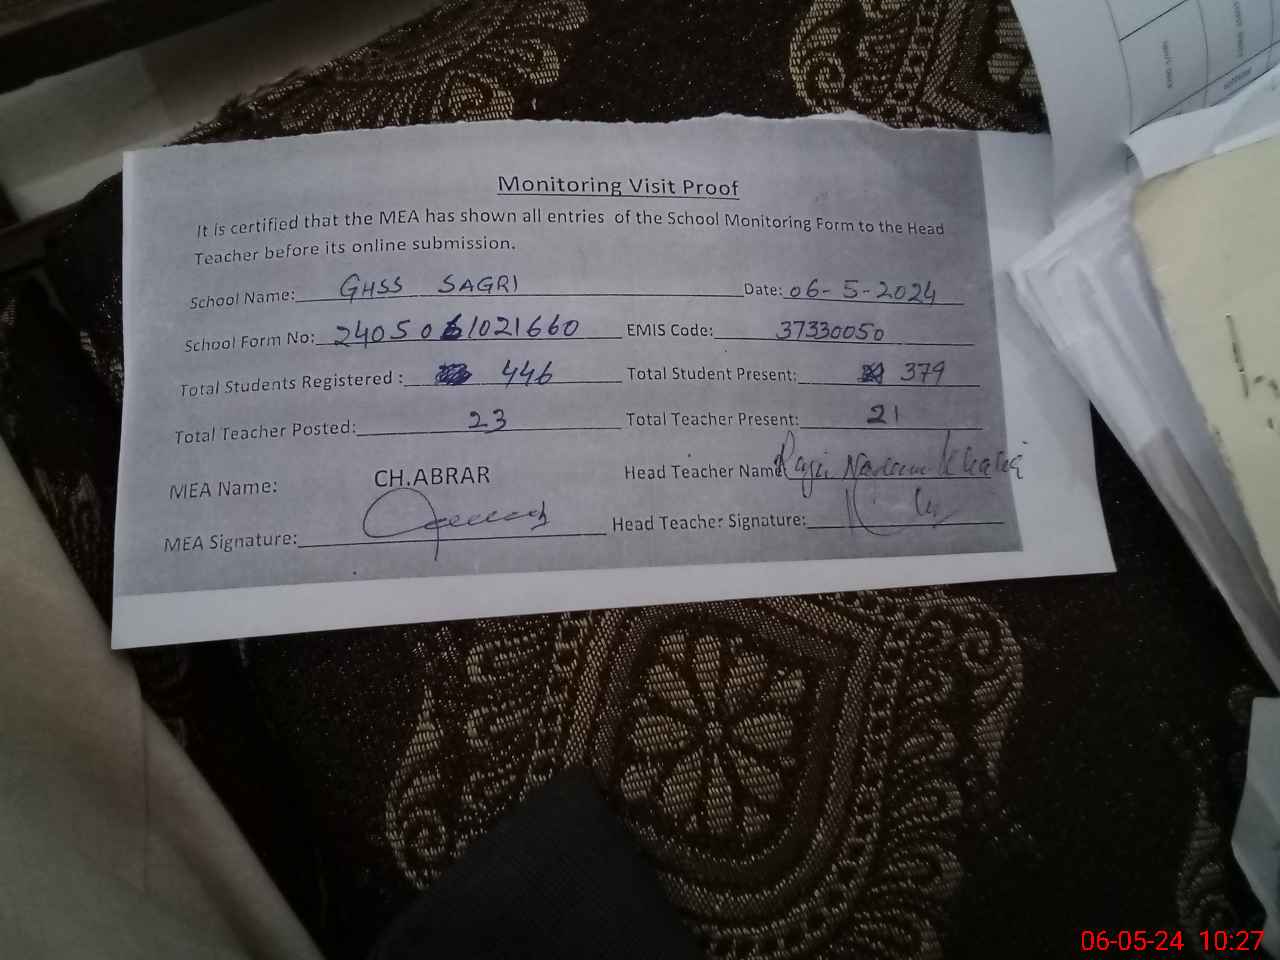 Monitoring Visit Proof
It is certified that the MEA has shown all entries of the School Monitoring Form to the Head
Teacher before its online submission.
School Name: GHSS SAGRI Date: 06-5-2024
School Form No: 2405061021660 EMIS Code: 37330050
Total Students Registered : 446 Total Student Present: 379
Total Teacher Posted: 23 Total Teacher Present: 21
MEA Name: CH.ABRAR Head Teacher Name
MEA Signature: Head Teacher Signature:
06-05-24 10:27